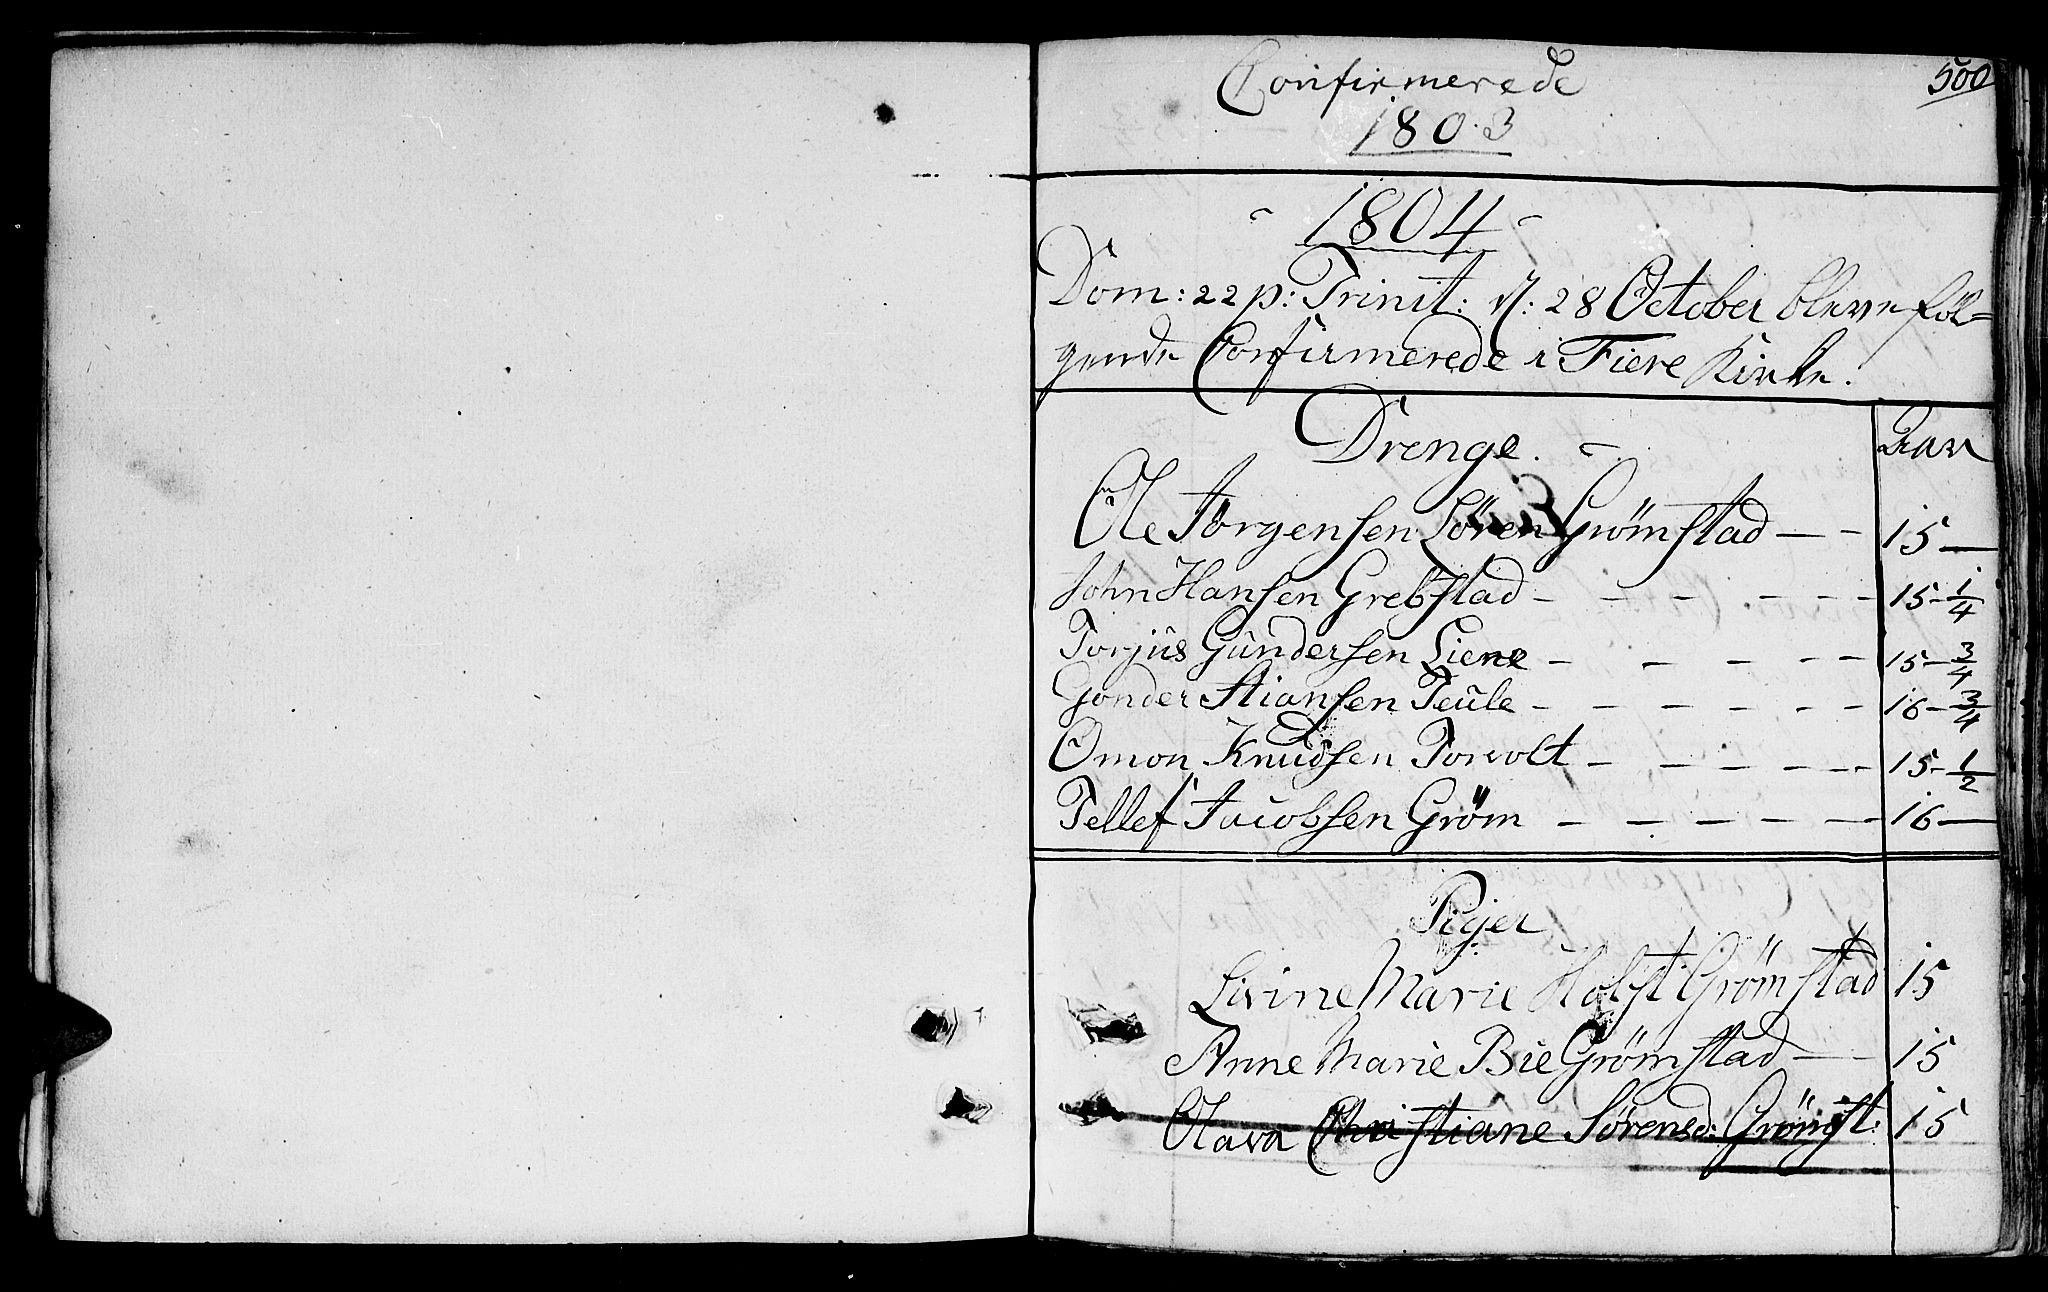 Confirmerede
500
1803
1804
Dom: 22 p: Trinit: d: 28 October bleve føl=
gende Confirmerede i Fiere Kirke.
Drenge. Aar
Ole Jørgensen Sören Grömstad — — 15 —
John Hansen Grebstad — — — — — — 15-1/4
Torjus Gundersen Liene — — — — — 15-3/4
Gonder Stiansen Teule — — — — — — 16-3/4
Omon Knudsen Torvolt — — — — — — 15-1/2
Tellef Jacobsen Gröm — — — — — — 16 —
Piger
Livine Marie Holst Grömstad 15
Anne Marie Bie Grömstad — — 15
Olava Christiane Sørensd: Grömst: 15